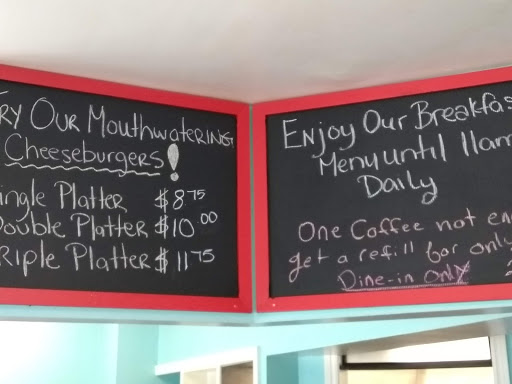 RY OUR MouthwateRING
Cheeseburgers!
ingle Platter $8.75
Double Platter $10.00
Riple Platter $11.75
Enjoy Our Breakfas
Menu until 11am
Daily
One Coffee not en
get a refill for only
Dine-in only